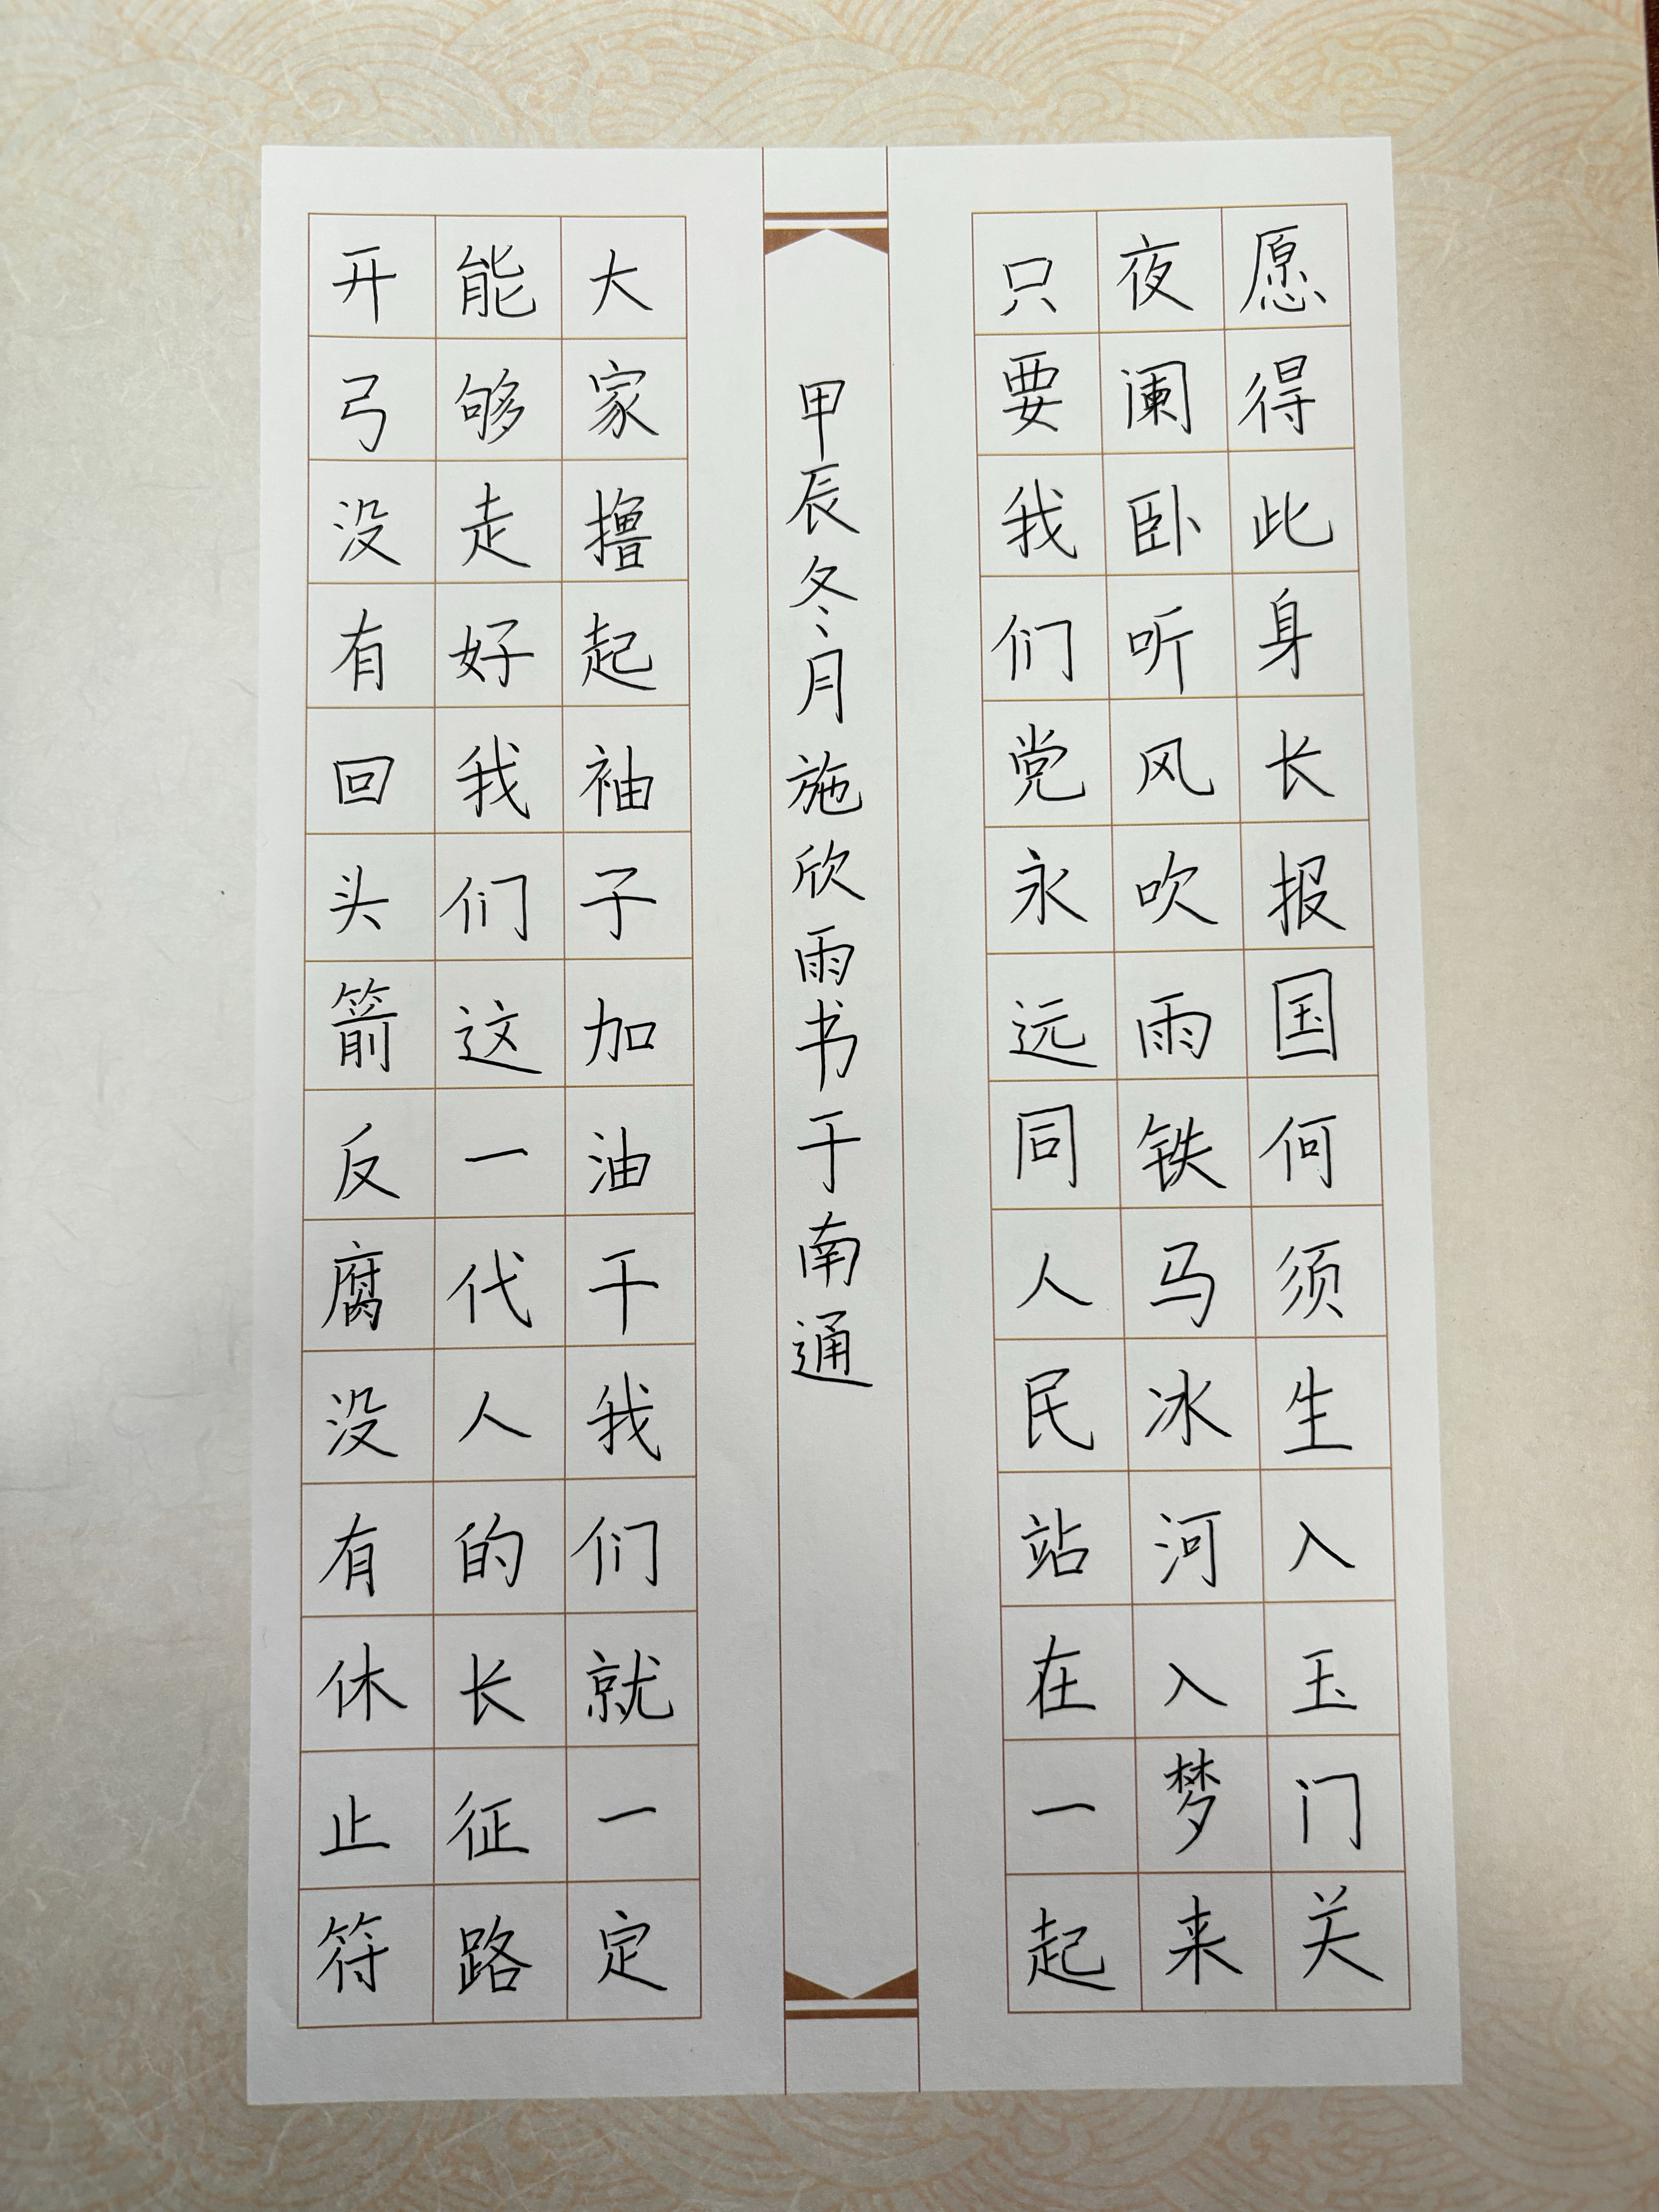 愿得此身长报国何须生入玉门关
夜阑卧听风吹雨铁马冰河入梦来
只要我们党永远同人民站在一起
甲辰冬月施欣雨书于南通
大家撸起袖子加油干我们就一定
能够走好我们这一代人的长征路
开弓没有回头箭反腐没有休止符